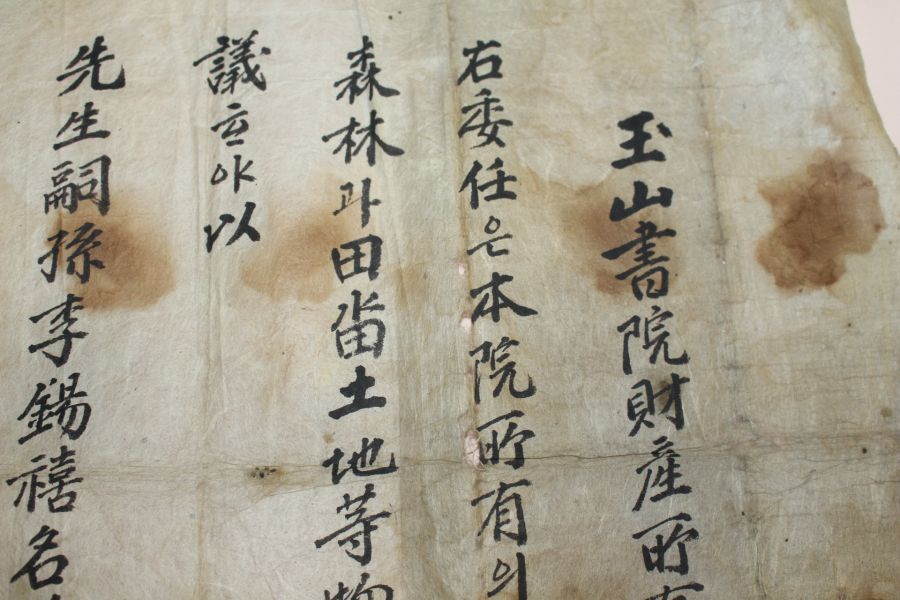 玉山書院財産所有
右委任은本院所有의
森林과田畓土地等物
議하야以
先生嗣孫李錫禧名